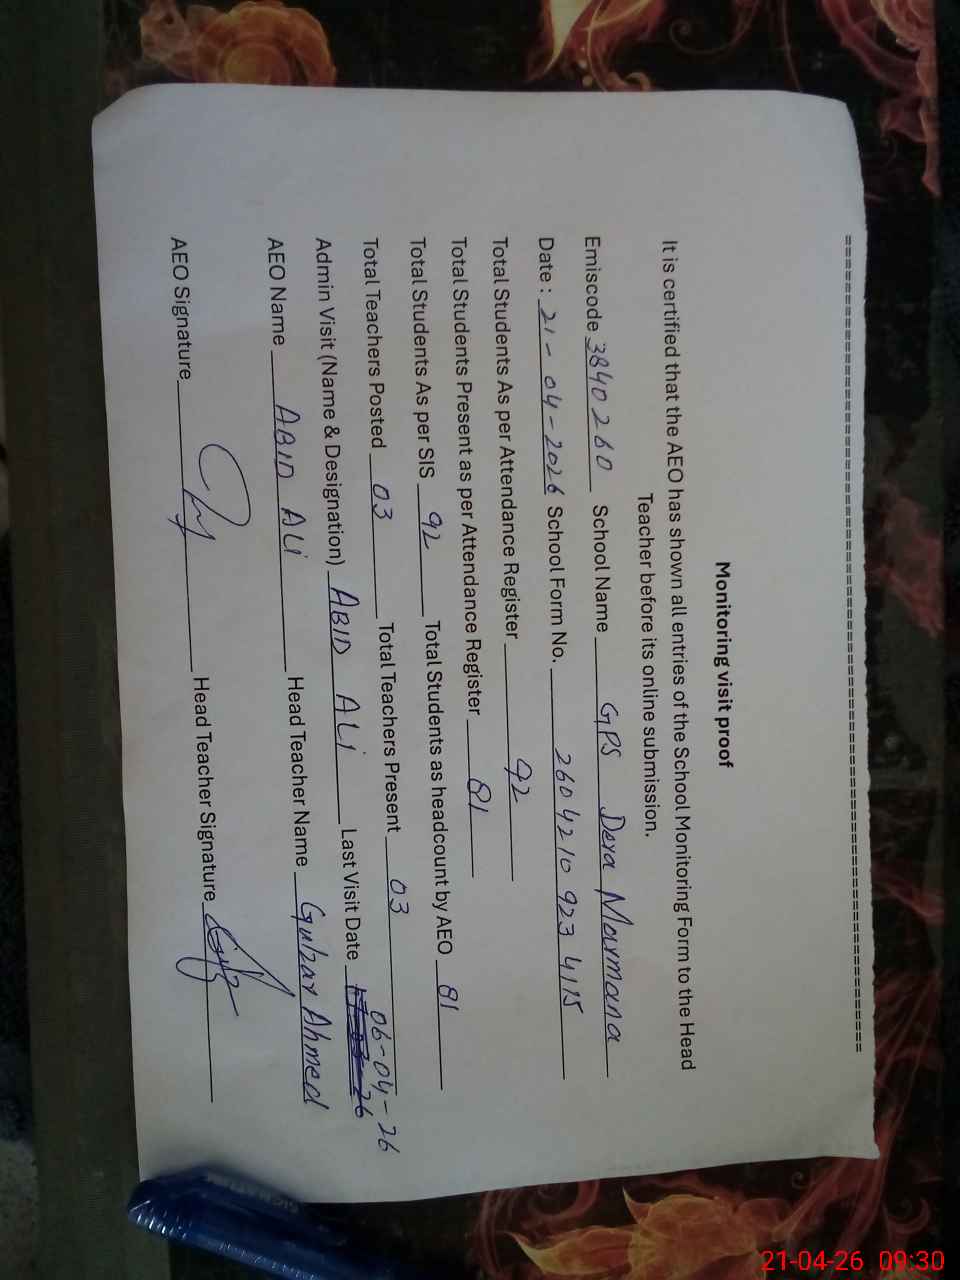 ================================================================
Monitoring visit proof
It is certified that the AEO has shown all entries of the School Monitoring Form to the Head
Teacher before its online submission.
Emiscode 3840260 School Name GPS Dera Marmana
Date: 21-04-2026 School Form No. 2604210923 4115
Total Students As per Attendance Register 92
Total Students Present as per Attendance Register 81
Total Students As per SIS 92 Total Students as headcount by AEO 81
Total Teachers Posted 03 Total Teachers Present 03
06-04-26
Admin Visit (Name & Designation) ABID ALi Last Visit Date
AEO Name ABID ALi Head Teacher Name Gulzar Ahmed
AEO Signature Head Teacher Signature
21-04-26 09:30